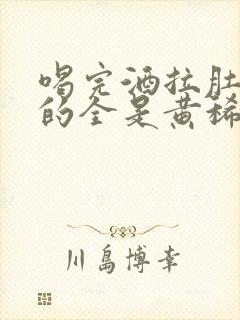 喝完酒拉肚
的全是黄稀
川島博幸